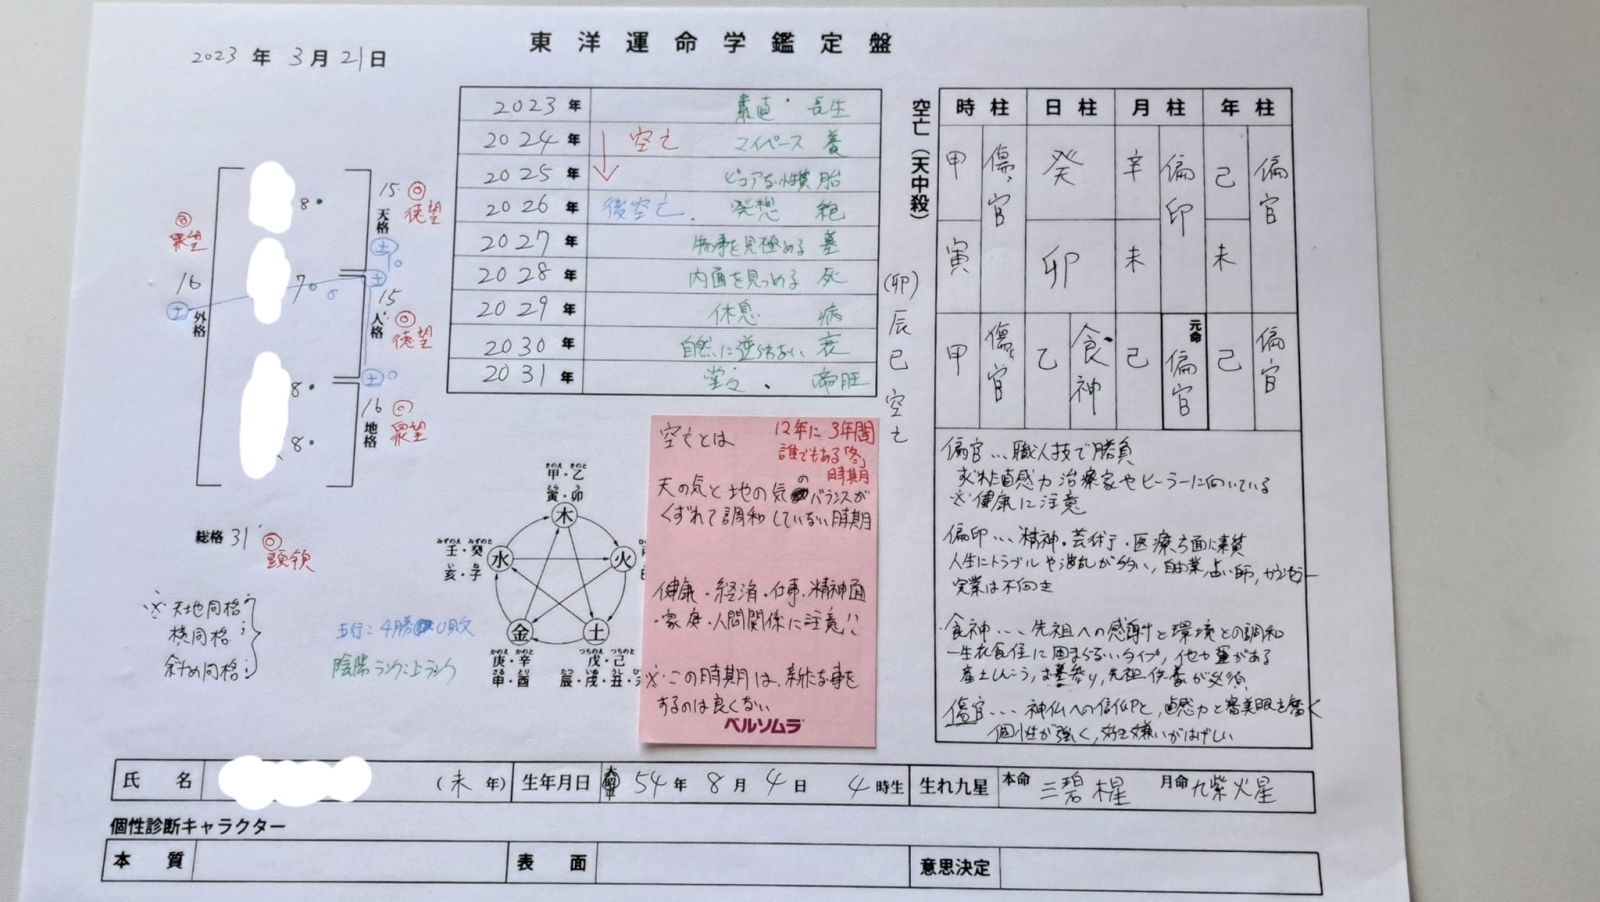 東洋運命学鑑定盤
2023年3月21日
2023年 素直 長生
2024年 空亡 マイペース 養
2025年 ピュアな性質 胎
2026年 後空亡 発想 絶
2027年 物事を見極める 墓
2028年 内面を見つめる 死
2029年 休息 病
2030年 自然に逆らわない 衰
2031年 帝旺
8
7
8
8
15 ◎
天格 徳望
土
土
15
人格 ◎
徳望
土
16
地格
衆望
◎
衆望
16
土
外格
総格 31 ◎
頭領
※天地同格
横同格
斜め同格
陰陽ランク:上ランク
きのえ きのと
甲・乙
とら う
寅・卯
木
みずのえ みずのと
壬・癸
亥・子
水
火
金
土
かのえ かのと
庚・辛
さる とり
申・酉
つちのえ つちのと
戊・己
辰・戌・丑・
空亡とは
12年に3年間
誰でもある「冬」
時期
天の気と地の気のバランスが
くずれて調和していない時期
健康・経済・仕事・精神面
・家庭・人間関係に注意!!
※この時期は、新たな事を
するのは良くない
ベルソムラ
空亡(天中殺)
(卯)辰巳空亡
時柱 日柱 月柱 年柱
甲 傷官 癸 辛 偏印 己 偏官
寅 卯 未 未
甲 傷官 乙 食神 己 元命 偏官 己 偏官
偏官…職人技で勝負
直感力 治療家やヒーラーに向いている
※健康に注意
偏印…精神・芸術・医療方面に素質
人生にトラブルや波乱が多い,自由業,占い師,
実業は不向き
・食神…先祖への感謝と環境との調和
一生衣食住に困まらないタイプ,
墓参り,先祖供養が必須
傷官…神仏への信仰と,直感力と審美眼を磨く
個性が強く,好き嫌いがはげしい
氏名 (未年) 生年月日 54年8月4日 4時生 生れ九星 本命 三碧木星 月命 九紫火星
個性診断キャラクター
本質 表面 意思決定